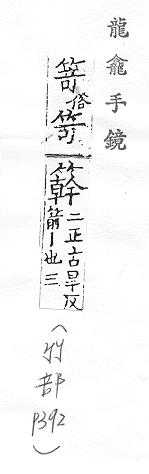 龍龕手鏡
俗笴簳二正古旱反箭丨也三
(竹部 P392)